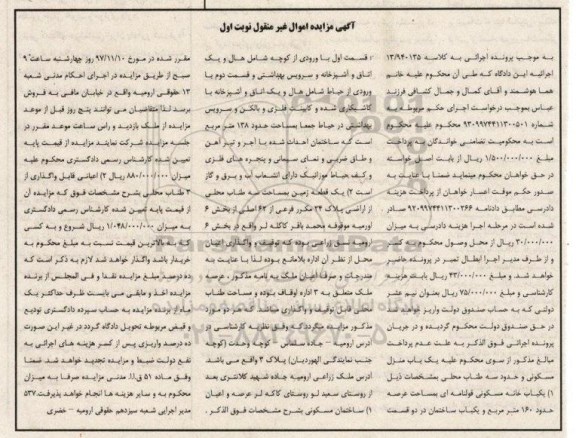 آگهی مزایده اموال غیر منقول نوبت اول
به موجب پرونده اجرائی به کلاسه ۱۳/۹۴۰۱۳۵
اجرائیه این دادگاه که طی آن محکوم علیه خانم
هما هوشمند و آقای کمال و جمال کتبافی فرزند
عباس بموجب درخواست اجرای حکم مربوطه به
شماره ۹۳۰۹۹۷۴۴۱۱۳۰۰۵۰۱ محکوم علیه محکوم
است به محکومیت تضامنی خواندگان به پرداخت
مبلغ ۱/۵۰۰/۰۰۰/۰۰۰ ریال از بابت اصل خواسته
در حق خواهان محکوم مینماید ضمنا با عنایت به
صدور حکم موقت اعسار خواهان از پرداخت هزینه
دادرسی مطابق دادنامه ۹۲۰۹۹۷۴۴۱۱۳۰۰۲۶۶ صادر
شده است در مرحله اجرا هزینه دادرسی به میزان
۳۰/۰۰۰/۰۰۰ ریال از محل وصول محکوم به کسر
و از طرف مدیر اجرا ابطال تمبر در پرونده حاضر
خواهد شد. و مبلغ ۴۳/۰۰۰/۰۰۰ ریال بابت هزینه
کارشناسی و مبلغ ۷۵/۰۰۰/۰۰۰ ریال بعنوان نیم عشر
دولتی که به حساب صندوق دولت واریز خواهد شد
در حق صندوق دولت محکوم گردیده و در جریان
پرونده اجرائی فوق الذکر به علت عدم پرداخت
مبالغ مذکور از سوی محکوم علیه یک باب منزل
مسکونی و حدود سه طناب محلی بمشخصات ذیل
۱) یکباب خانه مسکونی قولنامه ای بمساحت عرصه
حدود ۱۶۰ متر مربع و یکباب ساختمان در دو قسمت
: قسمت اول با ورودی از کوچه شامل هال و یک
اتاق و آشپزخانه و سرویس بهداشتی و قسمت دوم با
ورودی از حیاط شامل هال و یک اتاق و آشپزخانه با
کاشیکاری شده و کابینت فلزی و بالکن و سرویس
بهداشتی در حیاط جمعا بمساحت حدود ۱۳۸ متر مربع
است که ساختمان احداث شده با آجر و تیر آهن
و طاق ضربی و نمای سیمانی و پنجره های فلزی
و کف حیاط موزائیک دارای انشعاب آب و برق و گاز
است ۲) یک قطعه زمین بمساحت سه طناب محلی
از اراضی پلاک ۲۴ مکرر فرعی از ۶۲ اصلی از بخش ۶
اورمیه موقوفه محمد باقر کاکله لر واقع در بخش ۶
رومیه نسق زراعی بوده که تولیت و واگذاری این
محل از نظر آن اداره بلامانع بوده لذا با عنایت به
مندرجات و صرفا اعیان ملک به نامه مذکور، عرصه
ملک متعلق به ۳ اداره اوقاف بوده و مساحت طناب
محلی قابل توقیف و واگذاری میباشد که جزء مورد
مذکور مزایده میگردد که وفق نظریه کارشناسی در
آدرس ارومیه – جاده سلماس – کوچه وحدت (کوچه
جنب نمایندگی الهوردیان) پلاک ۳ واقع می باشد.
آدرس ملک زراعی ارومیه جاده شهید کلانتری بعد
از روستای سعید لو روستای کاکه لر عرصه و اعیان
۱) ساختمان مسکونی بشرح مشخصات فوق الذکر .
مقرر شده در مورخ ۹۷/۱۱/۱۰ روز چهارشنبه ساعت ۹
صبح از طریق مزایده در اجرای احکام مدنی شعبه
۱۳ حقوقی ارومیه واقع در خیابان مافی به فروش
برسد لذا متقاضیان می توانند پنج روز قبل از موعد
مزایده از ملک بازدید و راس ساعت موعد مقرر در
جلسه مزایده شرکت نمایند مزایده از قیمت پایه
تعیین شده کارشناس رسمی دادگستری محکوم علیه
به میزان ۸۸۰/۰۰۰/۰۰۰ ریال ۲) اعیانی قابل واگذاری از
۳ طناب محلی بشرح مشخصات فوق که مزایده آن
از قیمت پایه تعیین شده کارشناس رسمی دادگستری
به میزان ۱/۰۴۸/۰۰۰/۰۰۰ ریال شروع و به کسی
که به بالاترین قیمت نسبت به مبلغ محکوم به
خریدار باشد واگذار خواهد شد لازم به ذکر است که
ده درصد مبلغ مزایده نقدا و فی المجلس از برنده
مزایده اخذ و مابقی می بایست ظرف حداکثر یک
ماه برنده مزایده به حساب سپرده دادگستری تودیع
و فیش مربوطه تحویل دادگاه گردد در غیر این صورت
ده درصد واریزی پس از کسر هزینه های اجرائی به
نفع دولت ضبط و مزایده تجدید خواهد شد. ضمنا
وفق ماده ۵۱ ق.ا.ا. مدنی مزایده صرفا به میزان
محکوم به و سایر هزینه ها انجام خواهد پذیرفت.۵۳۷
مدیر اجرایی شعبه سیزدهم حقوقی ارومیه – خضری